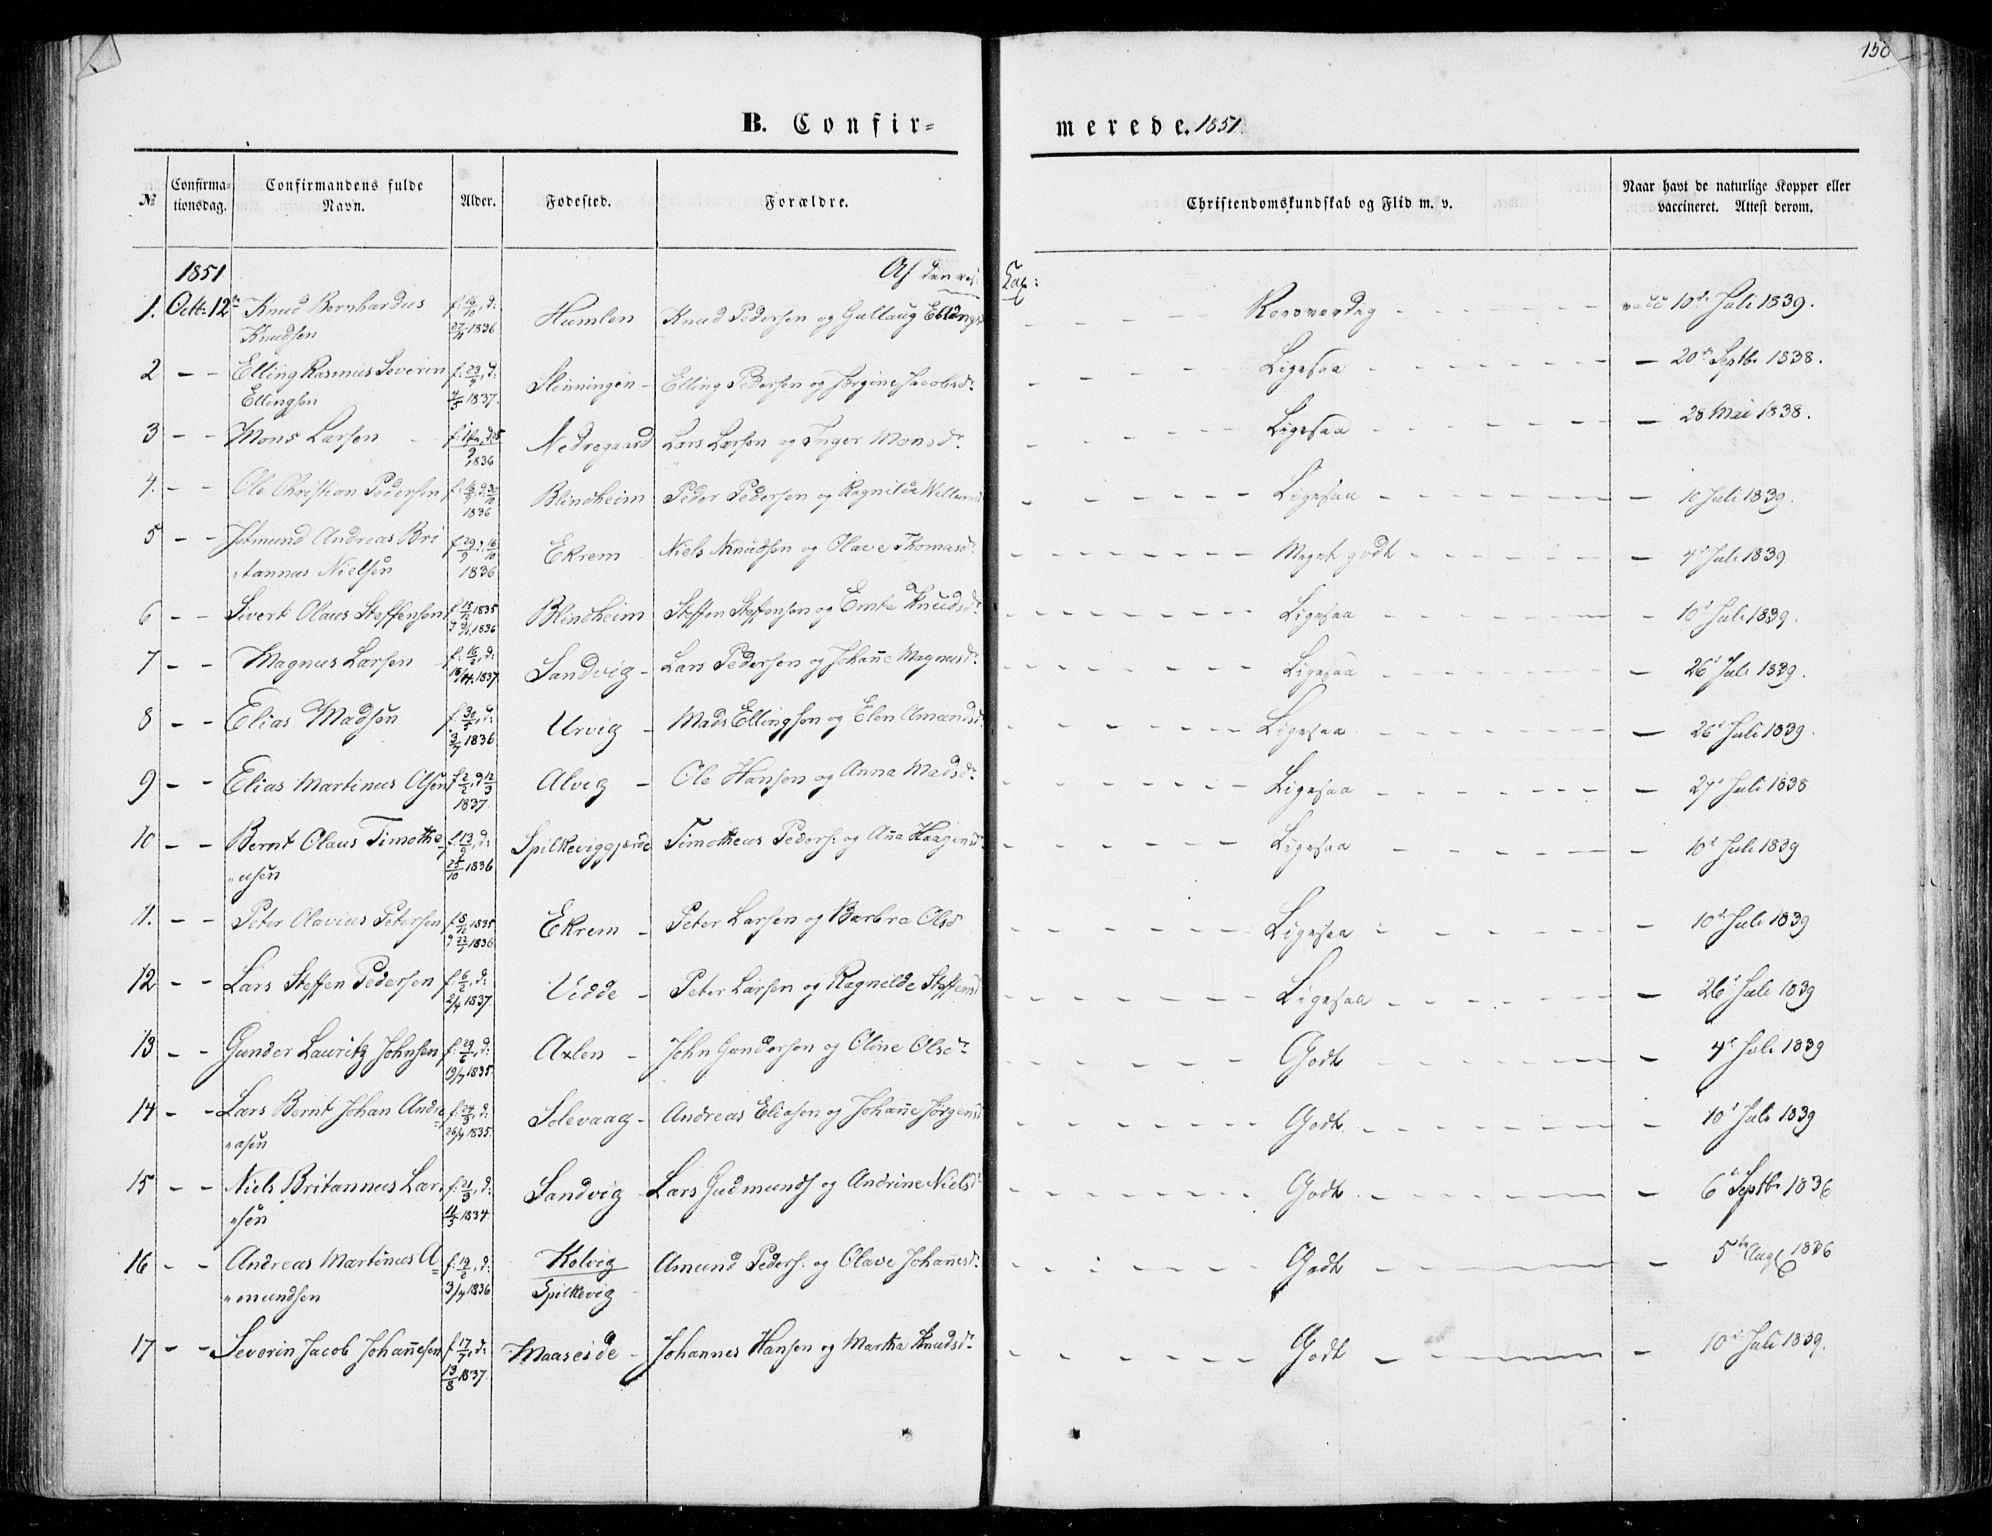 150
B. Confir=
merede. 1851
№
Confirma=
tionsdag.
Confirmandens fulde
Navn.
Alder.
Fødested.
Forældre.
Christendomskundskab og Flid m. v.
Naar havt de naturlige Kopper eller
vaccineret. Attest derom.
1851
Af den
1. Octb. 12 Knud Bernhardus f: 16/10, d: Humlen Knud Pedersen og Rosværdig vacc 10de Juli 1839.
Knudsen 27/11 1836
2 - - Elling Rasmus Severin f: 23/4, d: Slinningen - Elling Pedersen og Jørgine Jacobsdr Ligesaa - 20de Septbr 1838.
Ellingsen 4/5 1837.
3 - - Mons Larsen Nedregaard Lars Larsen og Inger Monsdr. Ligesaa - 28 Mai 1838.
1836
4. - - Ole Christian Pedersen Blindheim Peder Pedersen og Ragnilde Ligesaa - 10 Juli 1839.
1836
5 - - Andreas Bri f: 29/9, d: 16/10 Ekrem - Niels Knudsen og Olave Thomasdr. Meget godt - 4d Juli 1839
"tannus Nielsen 1836
6 - - Sivert Olaus Steffensen f: 13/12 1835 Blindheim Steffen Steffensen og Knudsdr Ligesaa - 10d Juli 1839.
d 9/1 1836
7 - - Magnus Larsen f: 16/2, d: Sandvig - Lars Pedersen og Johanne Magnusdr Ligesaa - 26d Juli 1839.
1837
8 - - Elias Madsen f: 30/5, d: Urvig - Mads Ellingsen og Elen Amundsdr Ligesaa - 26d Juli 1839.
3/7 1836
9 - - Elias Martinus Olsen f: 2/2, d 12/3 Alvig - Ole Hansen og Anna Madsdr Ligesaa - 27d Juli 1838
1837.
10 - - Bernt Olaus Timothe f: 13/9, d: Spilkeviggjerde Timotheus Peders: og Ana Haagensdr Ligesaa - 10d Juli 1839
"usen 25/10 1836
11. - - Peter Olavius Petersen f: 8/12 1835 Ekrem - Peter Larsen og Barbra Olsd Ligesaa - 10d Juli 1839
d 22/1 1836
12 - - Lars Steffen Pedersen f: 6/2, d: Vedde - Peter Larsen og Ragnilde Steffensd Ligesaa - 26d Juli 1839
2/4 1837
13 - - Gunder Lauritz Johnsen f: 29/6, d: Axlen - John Gundersen og Oline Olsdr Godt - 4d Juli 1839
19/7 1835.
14 - - Lars Bernt Johan Andre f: 24/3, d: Solevaag - Andreas Eliasen og Johanne Jørgensd Godt - 10d Juli 1839
"asen 26/4 1835.
15 - - Niels Britannus Lar f: 21/3, d: Sandvig - Lars Gudmunds og Andrine Nielsdr Godt - 6d Septbr 1836
"sen 1834
16 - - Andreas Martinus A= f: 19/2, d: Kolvig Amund Peders: og Olave Johannesdr Godt - 5te Aug 1836
"mundsen 3/4 1836 Spilkevig -
17 - - Severin Jacob Johannesen f: 17/7, d: Maaseide - Johannes Hansen og Martha Knudsdr Godt - 10d Juli 1839.
13/8 1837.